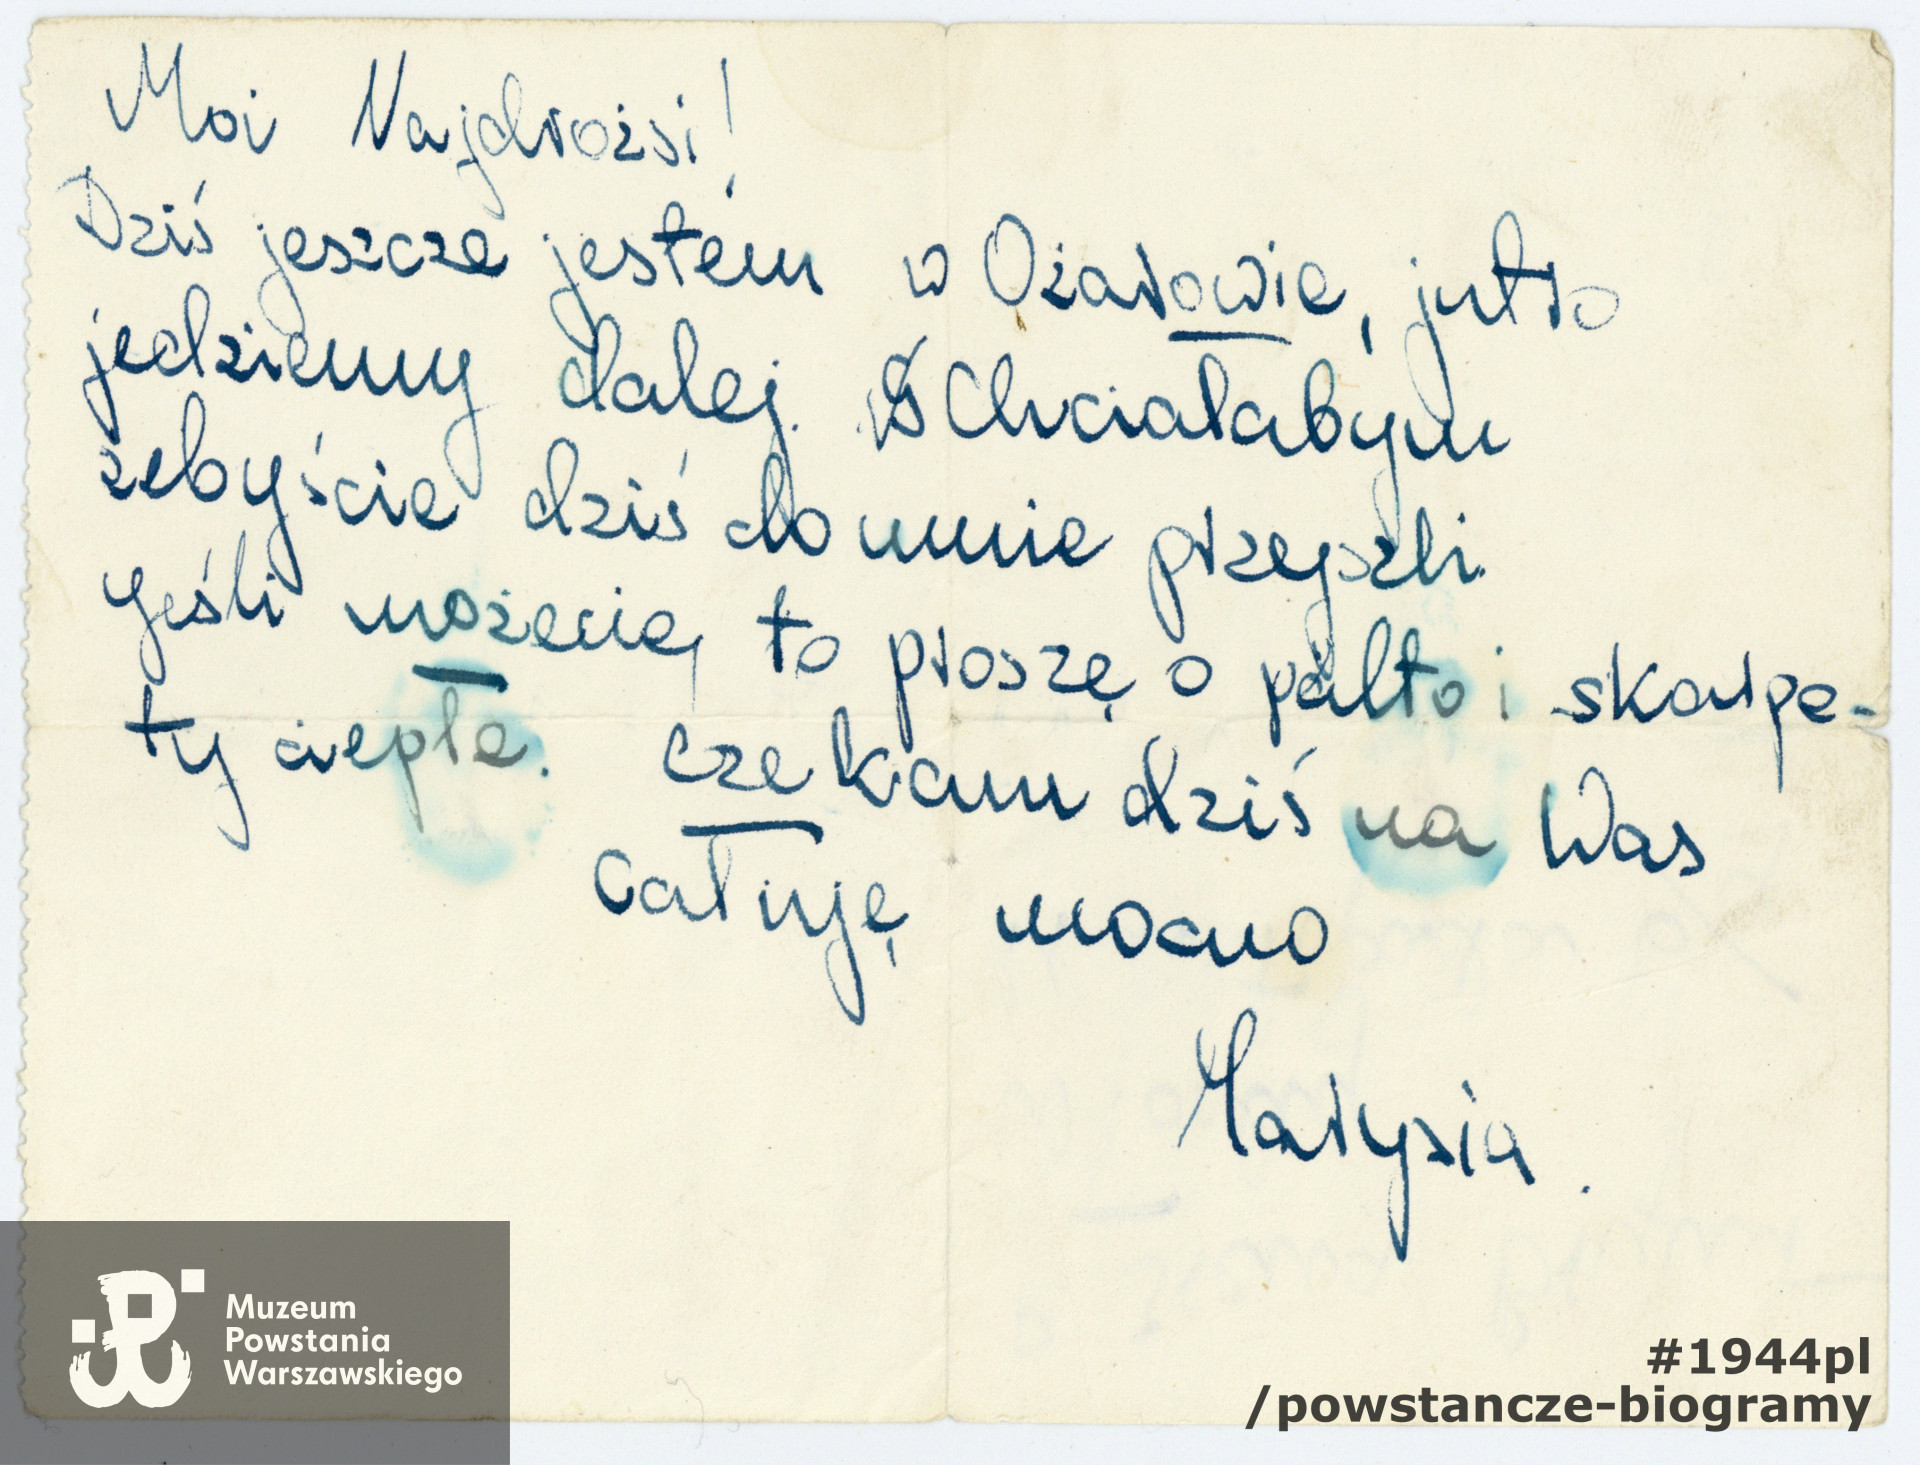 Moi Najdrożsi!
Dziś jeszcze jestem w Ożarowie, jutro
jedziemy dalej. Chciałabym
żebyście dziś do mnie przyszli.
Jeśli możecie, to proszę o palto i skarpe-
ty ciepłe. czekam dziś na Was
całuję mocno
Marysia.
Muzeum
Powstania
Warszawskiego
#1944pl
/powstancze-biogramy